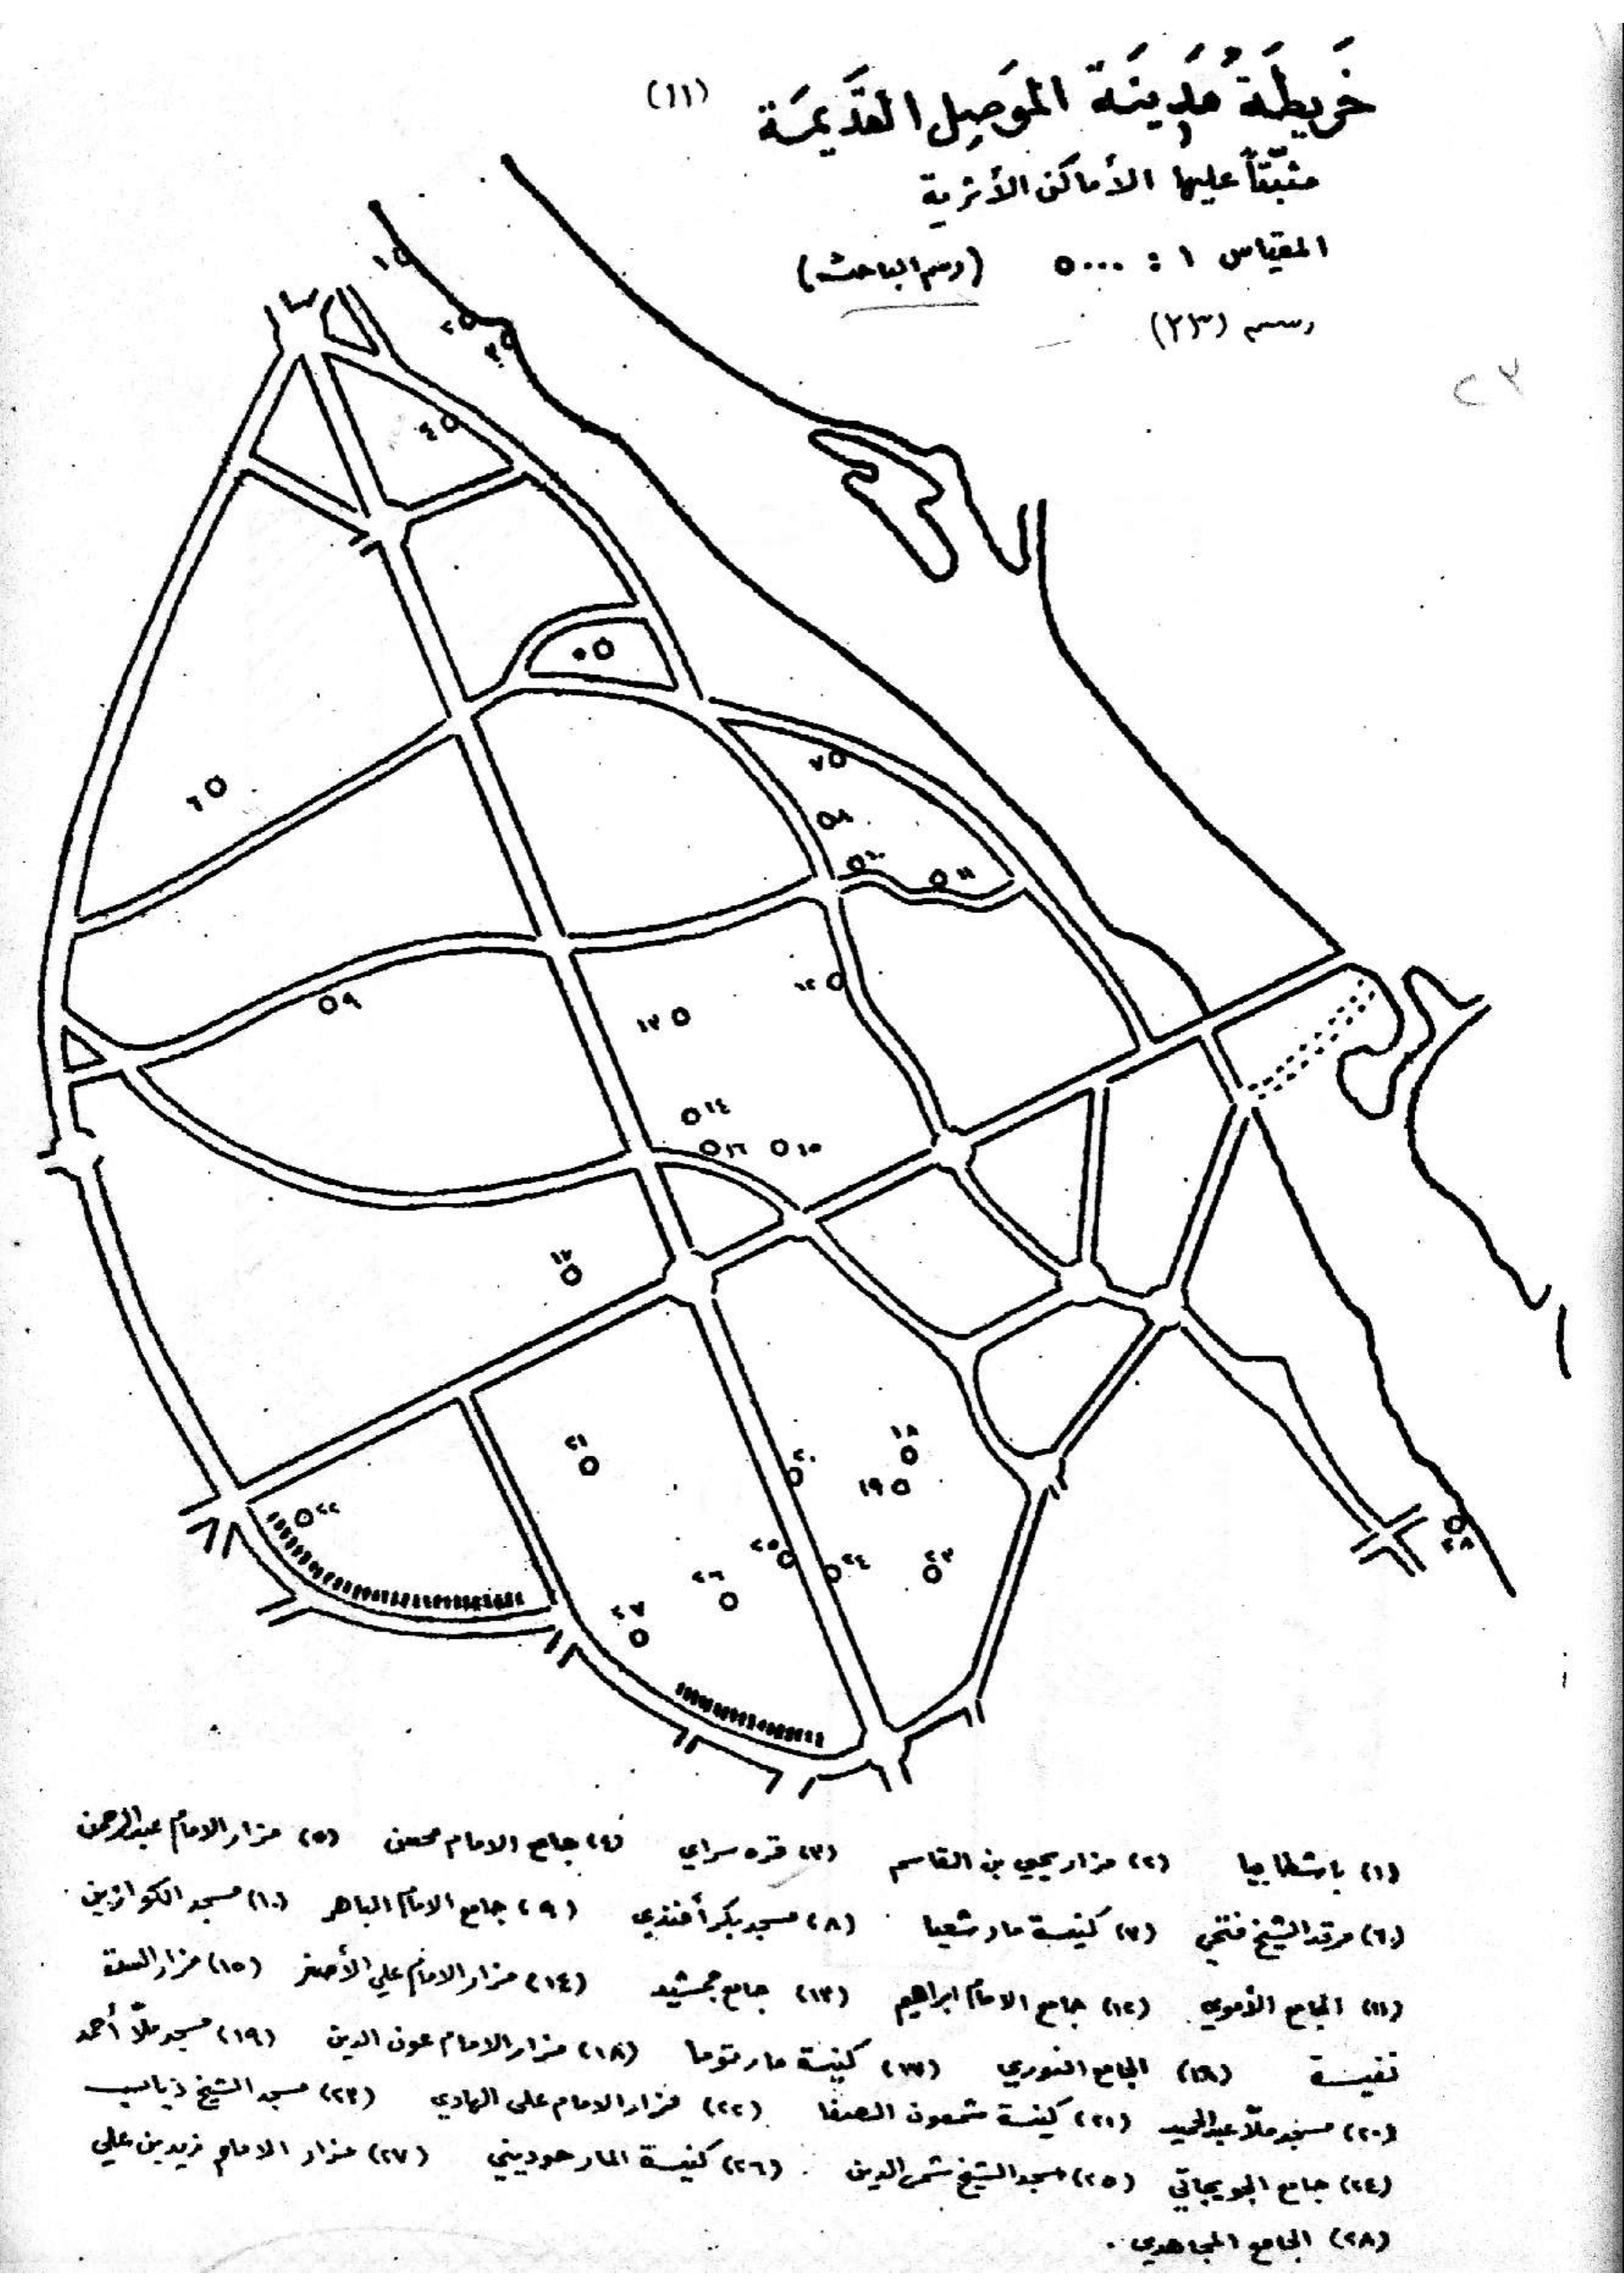 خَريطَة مَدِينَة المَوصِل القَدِيمَة (١١)
مثبّتاً عليها الأماكن الأثرية
المقياس ١ : ٥٠٠٠ (رسم الباحث)
رسم (٢٣)
٢٣
١
٢
٣
٤
٥
٦
٧
٨
١٠
١١
٩
١٢
١٣
١٤
١٦
١٥
١٧
١٨
١٩
٢٠
٢١
٢٢
٢٣
٢٤
٢٥
٢٦
٢٧
٢٨
(١) باشطابيا (٢) مزار يحيى بن القاسم (٣) قره سراي (٤) جامع الامام محسن (٥) مزار الامام عبدالرحمن
(٦) مرقد الشيخ فتحي (٧) كنيسة مار شعيا (٨) مسجد بكر أفندي (٩) جامع الامام الباهر (١٠) مسجد الكوازين
(١١) الجامع الأموي (١٢) جامع الامام ابراهيم (١٣) جامع جمشيد (١٤) مزار الامام علي الأصغر (١٥) مزار الست
نفيسة (١٦) الجامع النوري (١٧) كنيسة مار توما (١٨) مزار الامام عون الدين (١٩) مسجد ملّا أحمد
(٢٠) مسجد ملّا عبدالحميد (٢١) كنيسة شمعون الصفا (٢٢) مزار الامام علي الهادي (٢٣) مسجد الشيخ
(٢٤) جامع الجويجاتي (٢٥) مسجد الشيخ شمس الدين (٢٦) كنيسة المار حوديني (٢٧) مزار الامام زيد بن علي
(٢٨) الجامع المجاهدي .